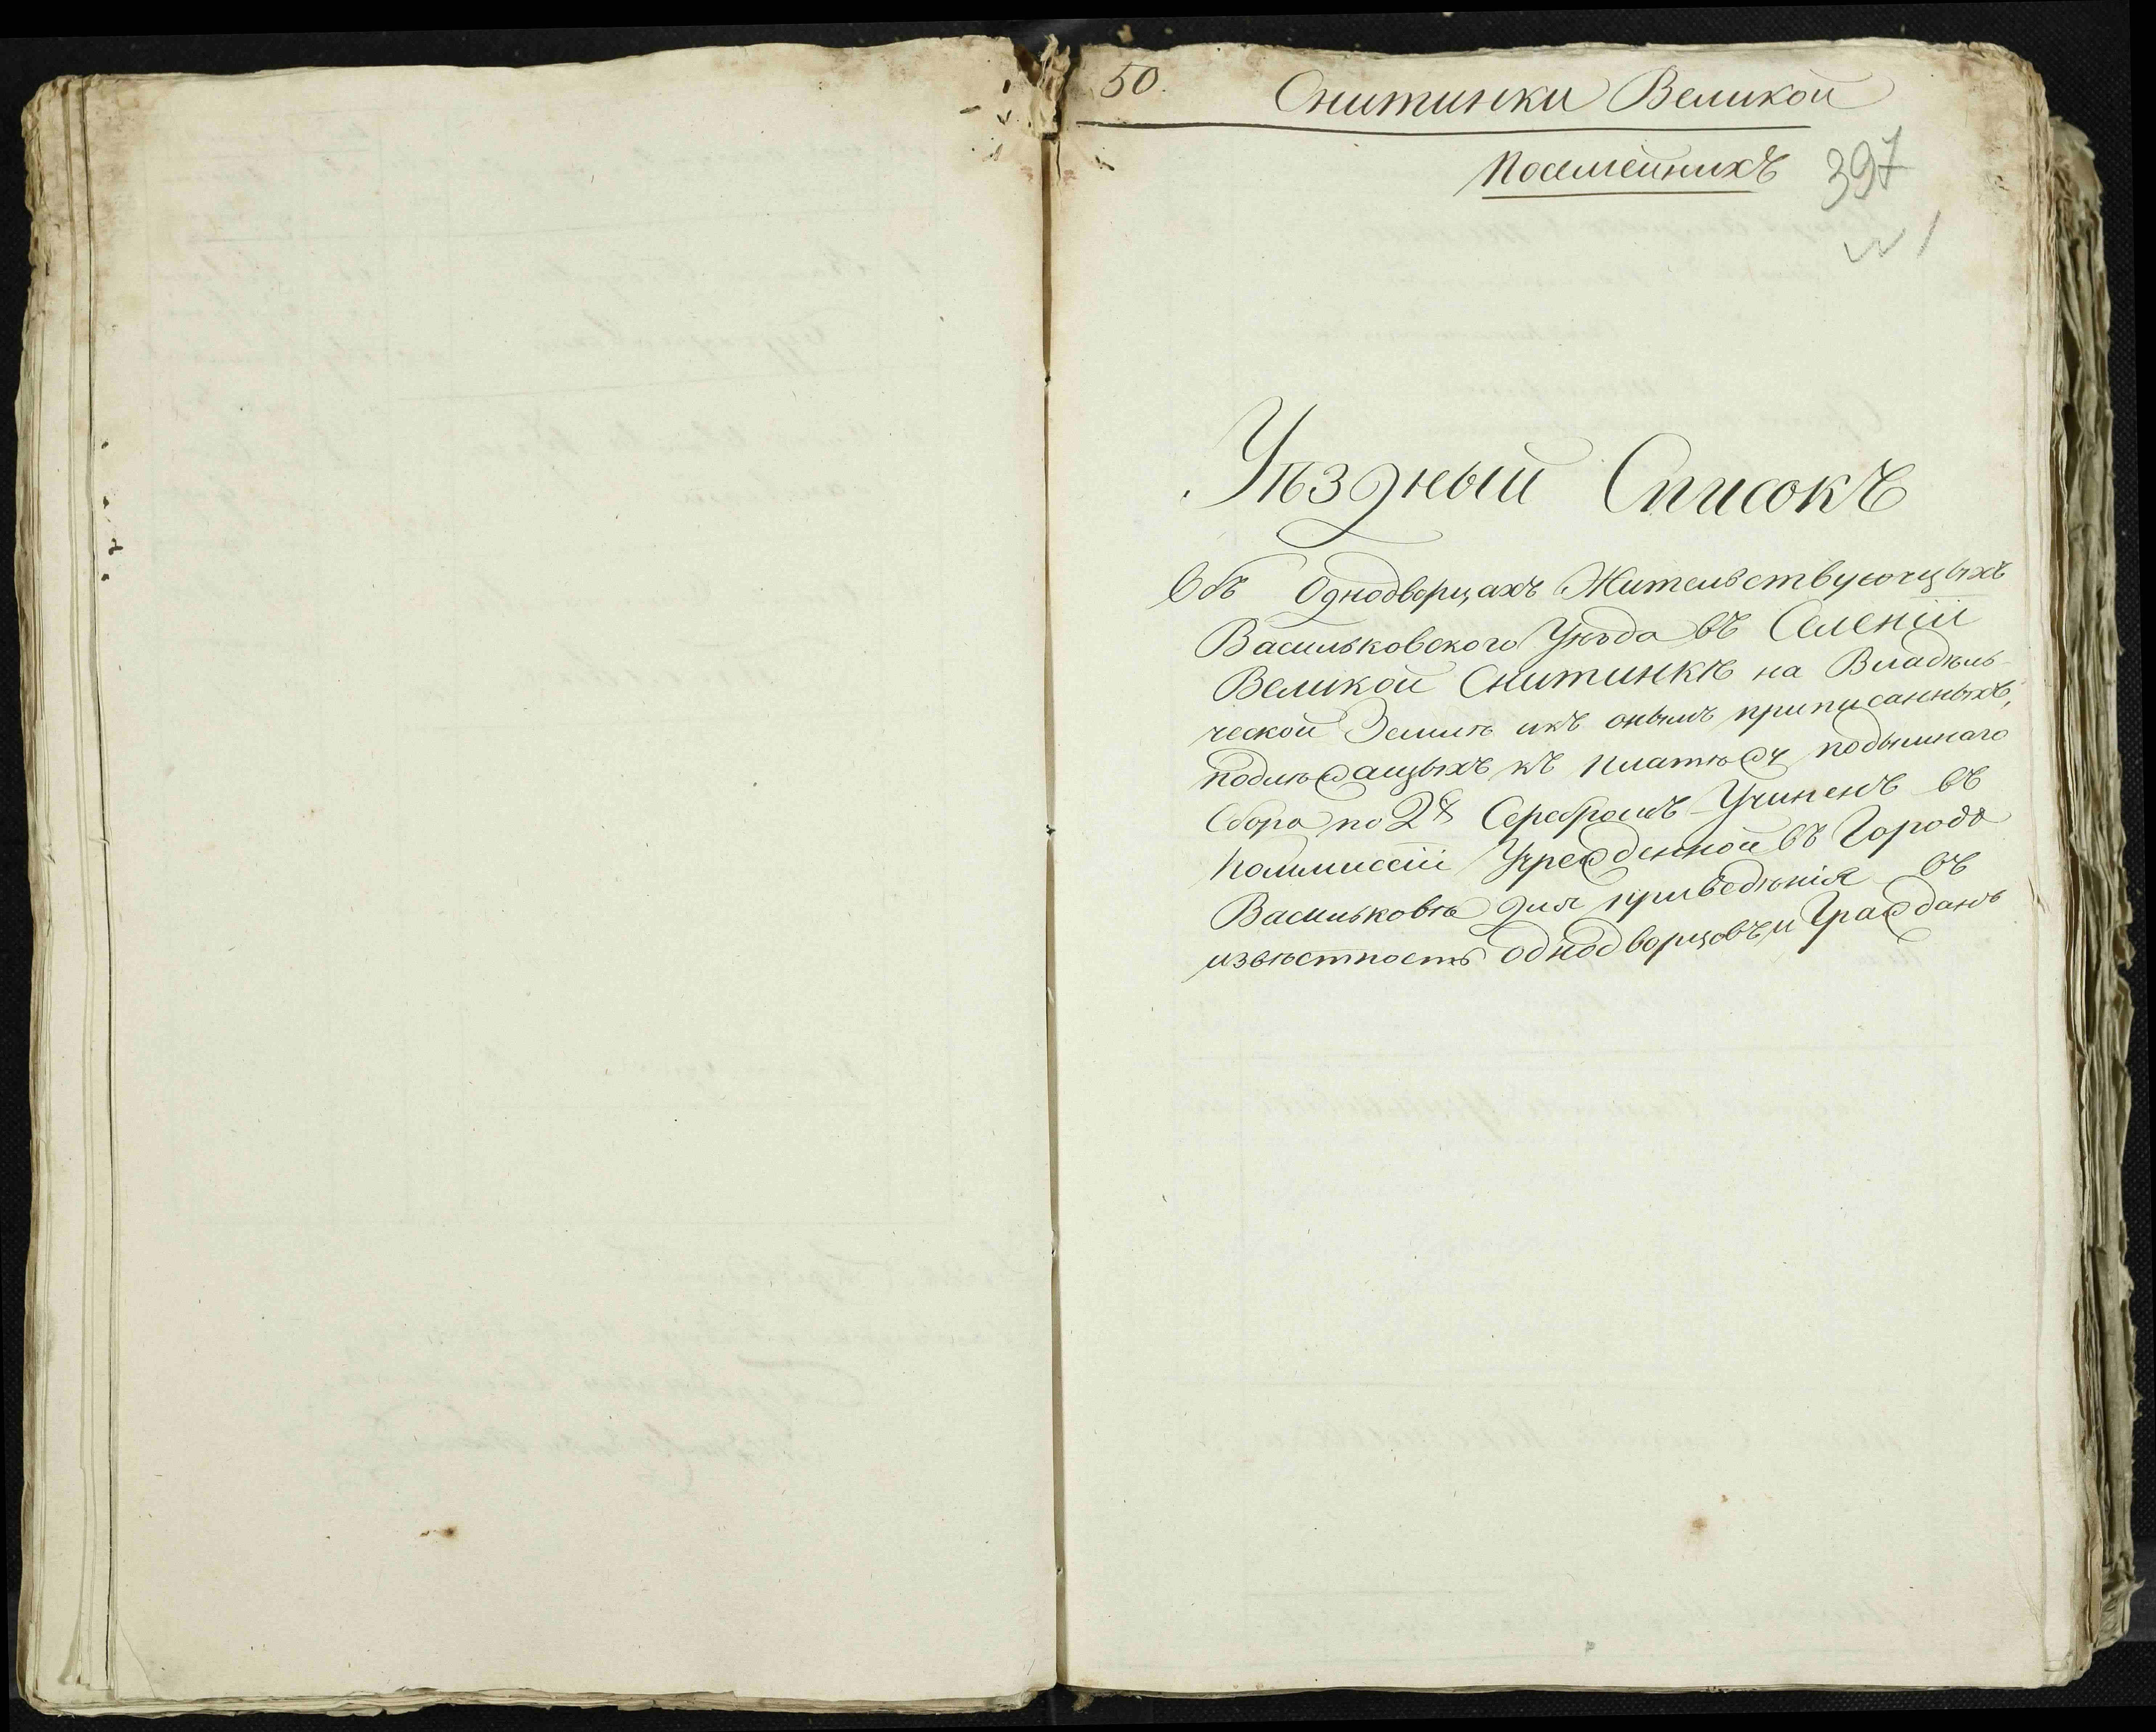 50. Снитинки Великой
Посемейникъ
397
Уѣздный Списокъ
Объ Однодворцахъ Жительствующыхъ
Васильковского Уѣзда въ Селеніи
Великой Снитинкѣ на Владѣль-
ческой Землѣ икъ онымъ приписанныхъ,
подлежащыхъ къ платежу подымнаго
Сбора по 2 Серебромъ Учиненъ въ
Коммиссіи Учрежденной въ Городѣ
Васильковѣ для привѣдѣнія въ
извѣстность однодворцовъ и Гражданъ